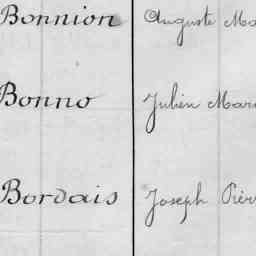 Bonnion Auguste Ma
Bonno Julien Mari
Bordais Joseph Pierr